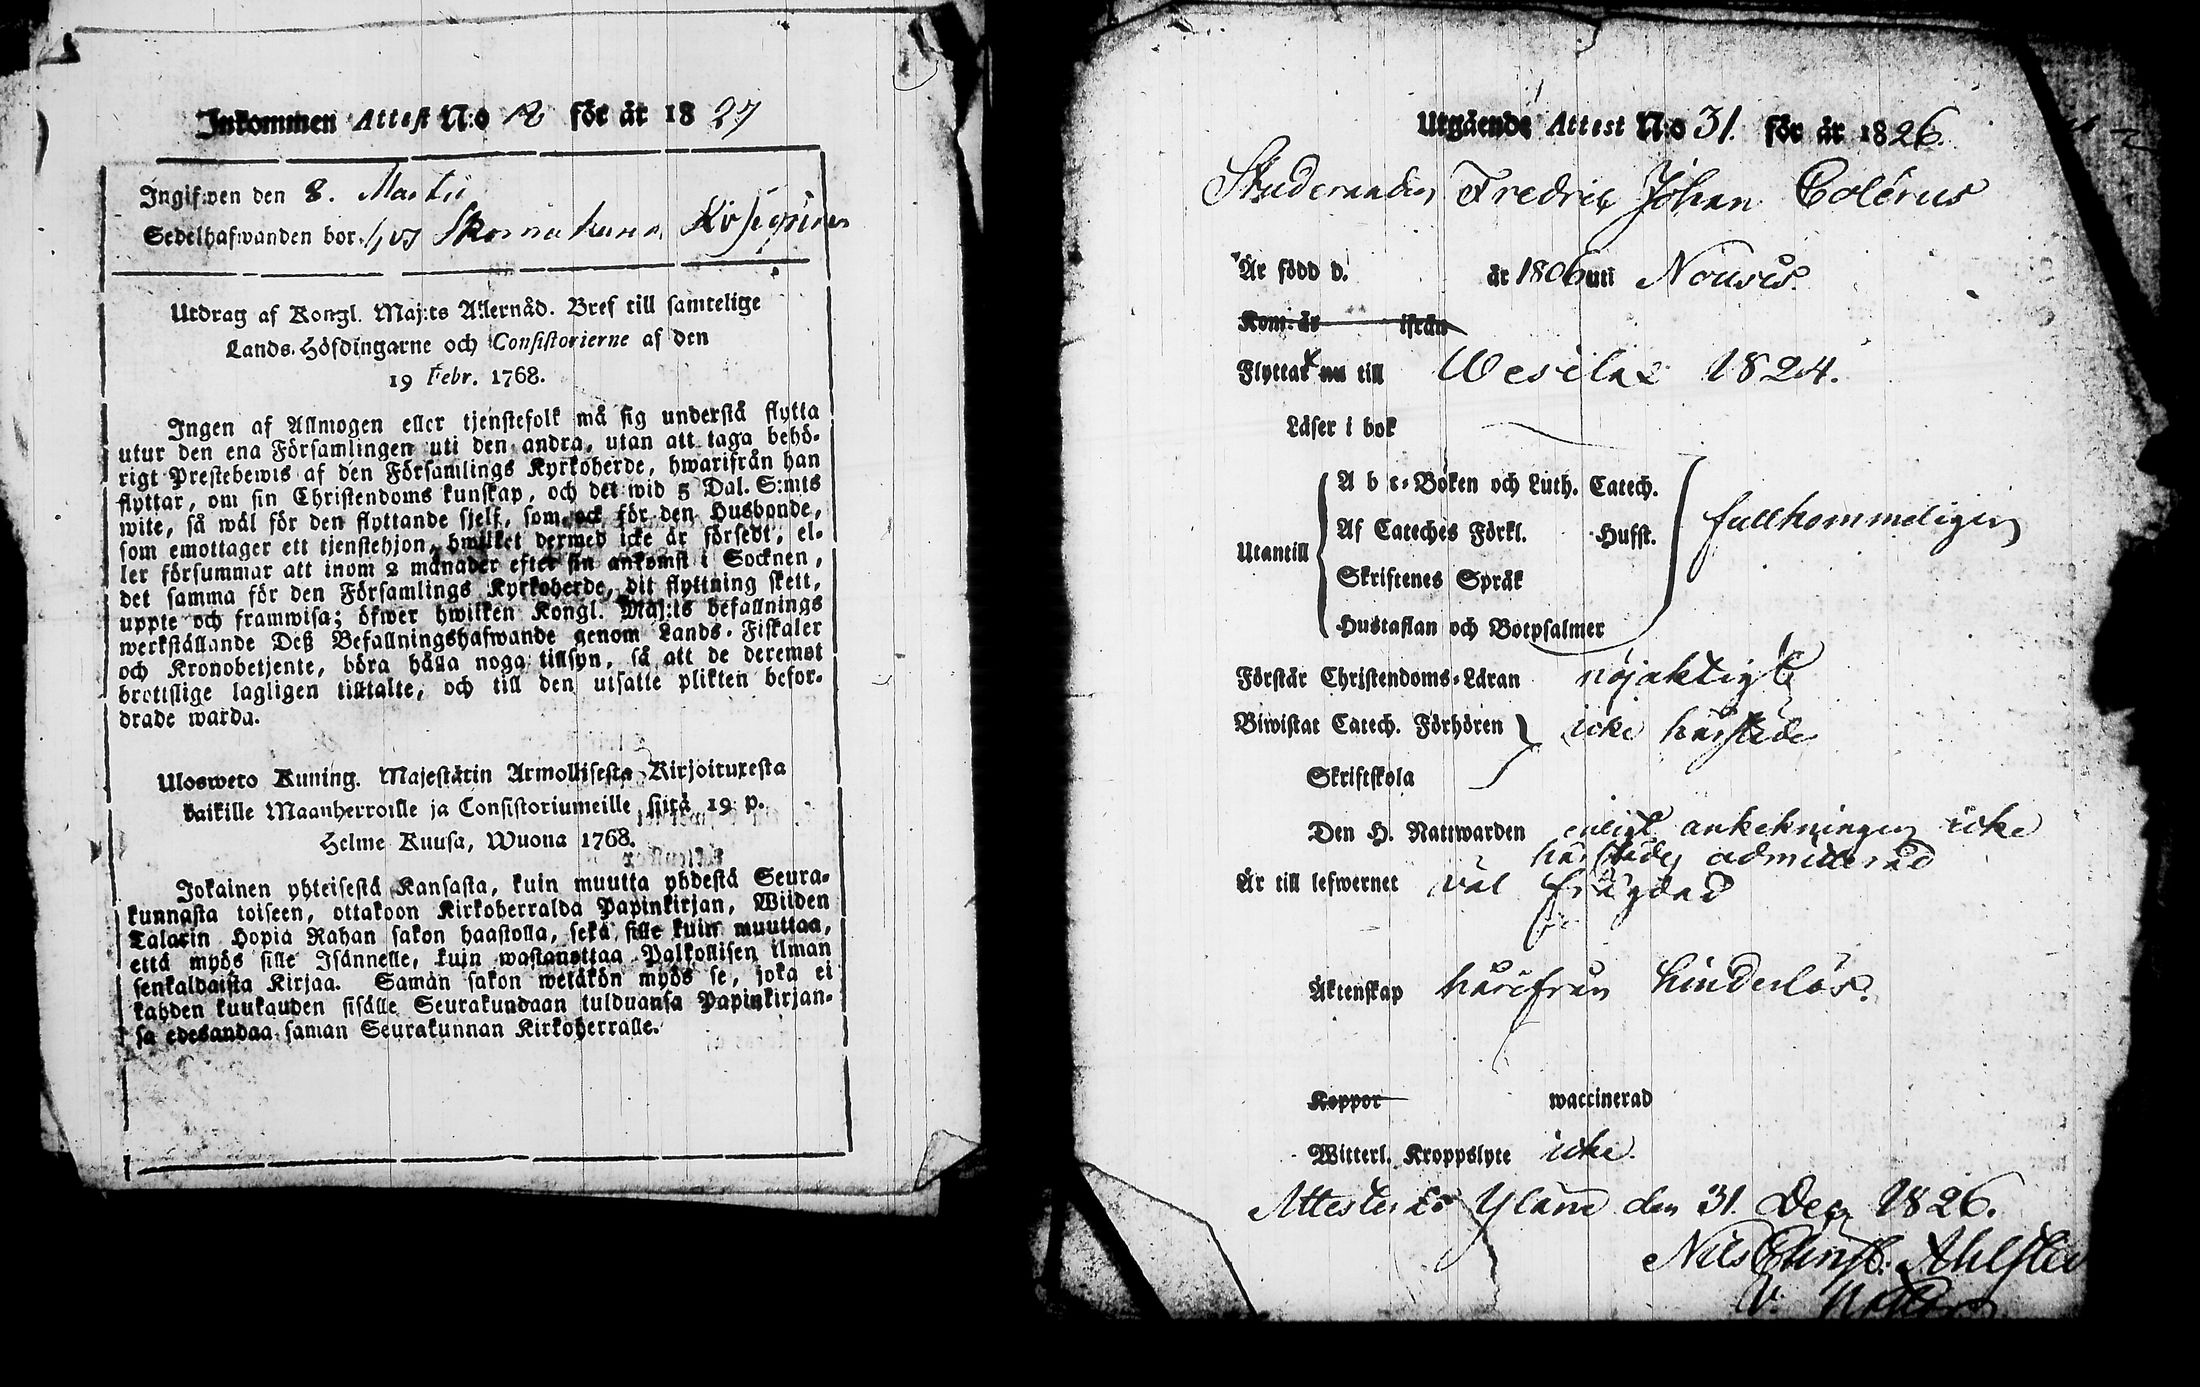 Inkommen Attest N:o 12 för år 1827
Ingifwen den 8. Martii
Sedelhafwanden bor hos
Utdrag af Kongl. Maj:ts Allernåd. Bref till samtelige
Lands-Höfdingarne och Consistorierne af den
19 Febr. 1768.
Ingen af Allmogen eller tjenstefolk må sig understå flytta
utur den ena Församlingen uti den andra, utan att taga behö-
rigt Prestebewis af den Församlings Kyrkoherde, hwarifrån han
flyttar, om sin Christendoms kunskap, och det wid 5 Dal. S:mts
wite, så wäl för den flyttande sjelf, som ock för den Husbonde,
som emottager ett tjenstehjon, hwilket dermed icke är försedt, el-
ler försummar att inom 2 månader efter sin ankomst i Socknen,
det samma för den Församlings Kyrkoherde, dit flyttning skett,
uppte och framwisa; öfwer hwilken Kongl. Maj:ts befallnings
werkställande Deß Befallningshafwande genom Lands-Fiskaler
och Kronobetjente, böra hålla noga tillsyn, så att de deremot
brottslige lagligen tilltalte, och till den utsatte plikten befor-
drade warda.
Ulosweto Kuning. Majestätin Armollisesta Kirjoituxesta
kaikille Maanherroille ja Consistoriumeille siitä 19 p.
Helme Kuusa, Wuona 1768.
Jokainen yhteisestä Kansasta, kuin muutta yhdestä Seura-
kunnasta toiseen, ottakoon Kirkoherralda Papinkirjan, Wiiden
Talarin Hopia Rahan sakon haastolla, sekä sille kuin muuttaa,
että myös sille Isännelle, kuin wastanottaa Palkollisen ilman
senkaldaista Kirjaa. Samän sakon wetäkön myös se, joka ei
kahden kuukauden sisälle Seurakundaan tulduansa Papinkirjan-
sa edesandaa saman Seurakunnan Kirkoherralle.
Utgående Attest N:o 31. för år 1826.
Studeranden Fredric Johan Colérus
Är född d. år 1806 uti Nousis.
Kom: år ifrån
Flyttat nu till Wesilax 1824.
Läser i bok
Utantill
A b c-Boken och Luth. Catech.
Af Cateches Förkl. Husst. fullkommeligen
Skriftenes Språk
Hustaflan och Botpsalmer
Förstår Christendoms-Läran nöjaktigt
Biwistat Catech. Förhören icke härstädes
Skriftskola
Den H. Nattwarden enligt anteckningen icke
härstädes admitterad
Är till lefwernet väl frägdad
Äktenskap härifrån hinderlös.
Koppor waccinerad
Witterl. Kroppslyte icke.
Attesterar Yläne den 31. Dec. 1826.
Nils